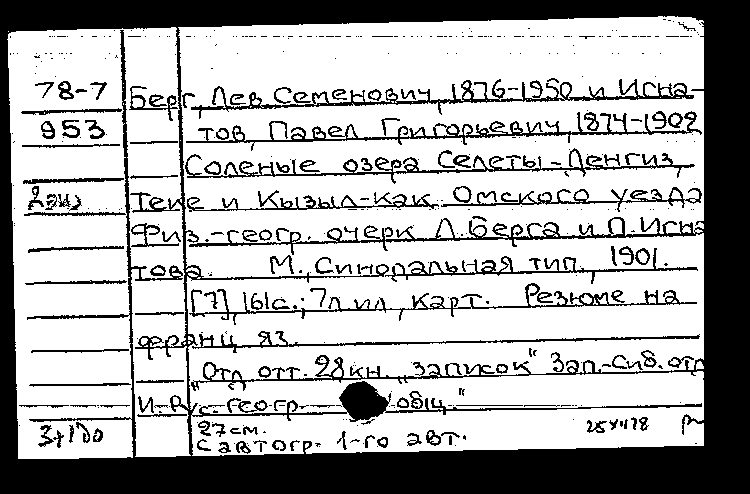 78-7 Берг, Лев Семенович, 1876-1950 и Игна-
953 тов, Павел Григорьевич, 1874-1902
Соленые озера Селеты-Денгиз,
2 экз Теке и Кызыл-как Омского уезда
Физ.-геогр. очерк Л. Берга и П. Игна
това. М., Синодальная тип., 1901.
[7], 161 с.; 7 л ил, карт. Резюме на
франц яз.
"Отд отт. 28 кн. "Записок" Зап.-Сиб. отд
И. Рус. геогр. общ."
27 см.
С автогр. 1-го авт.